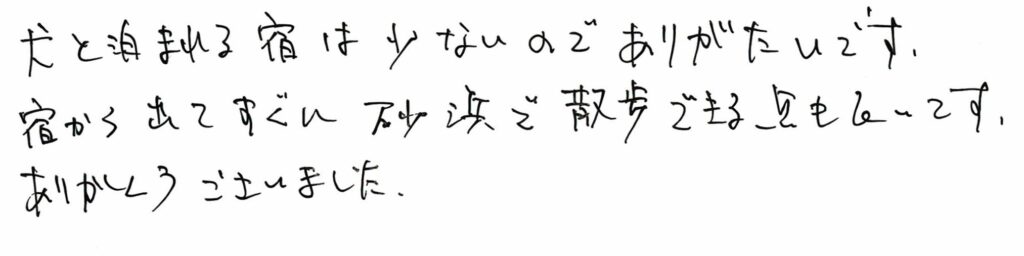 犬と泊まれる宿は少ないのでありがたいです.
宿から出てすぐに砂浜で散歩できる点も良いです.
ありがとうございました.